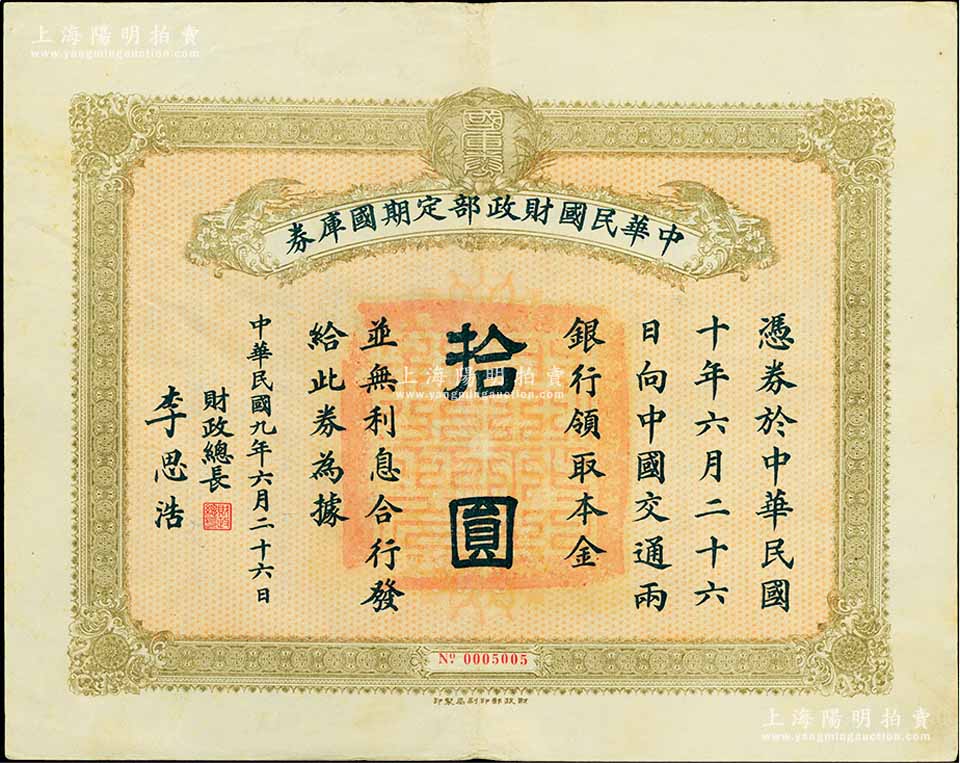 上海陽明拍賣
www.yangmingauction.com
國庫券
中華民國財政部定期國庫券
憑券於中華民國
十年六月二十六
日向中國交通兩
銀行領取本金
拾圓
並無利息合行發
給此券為據
中華民國九年六月二十六日
財政總長
李思浩
上海陽明拍賣
www.yangmingauction.com
No 0005005
財政部印刷局製印
上海陽明拍賣
www.yangmingauction.com